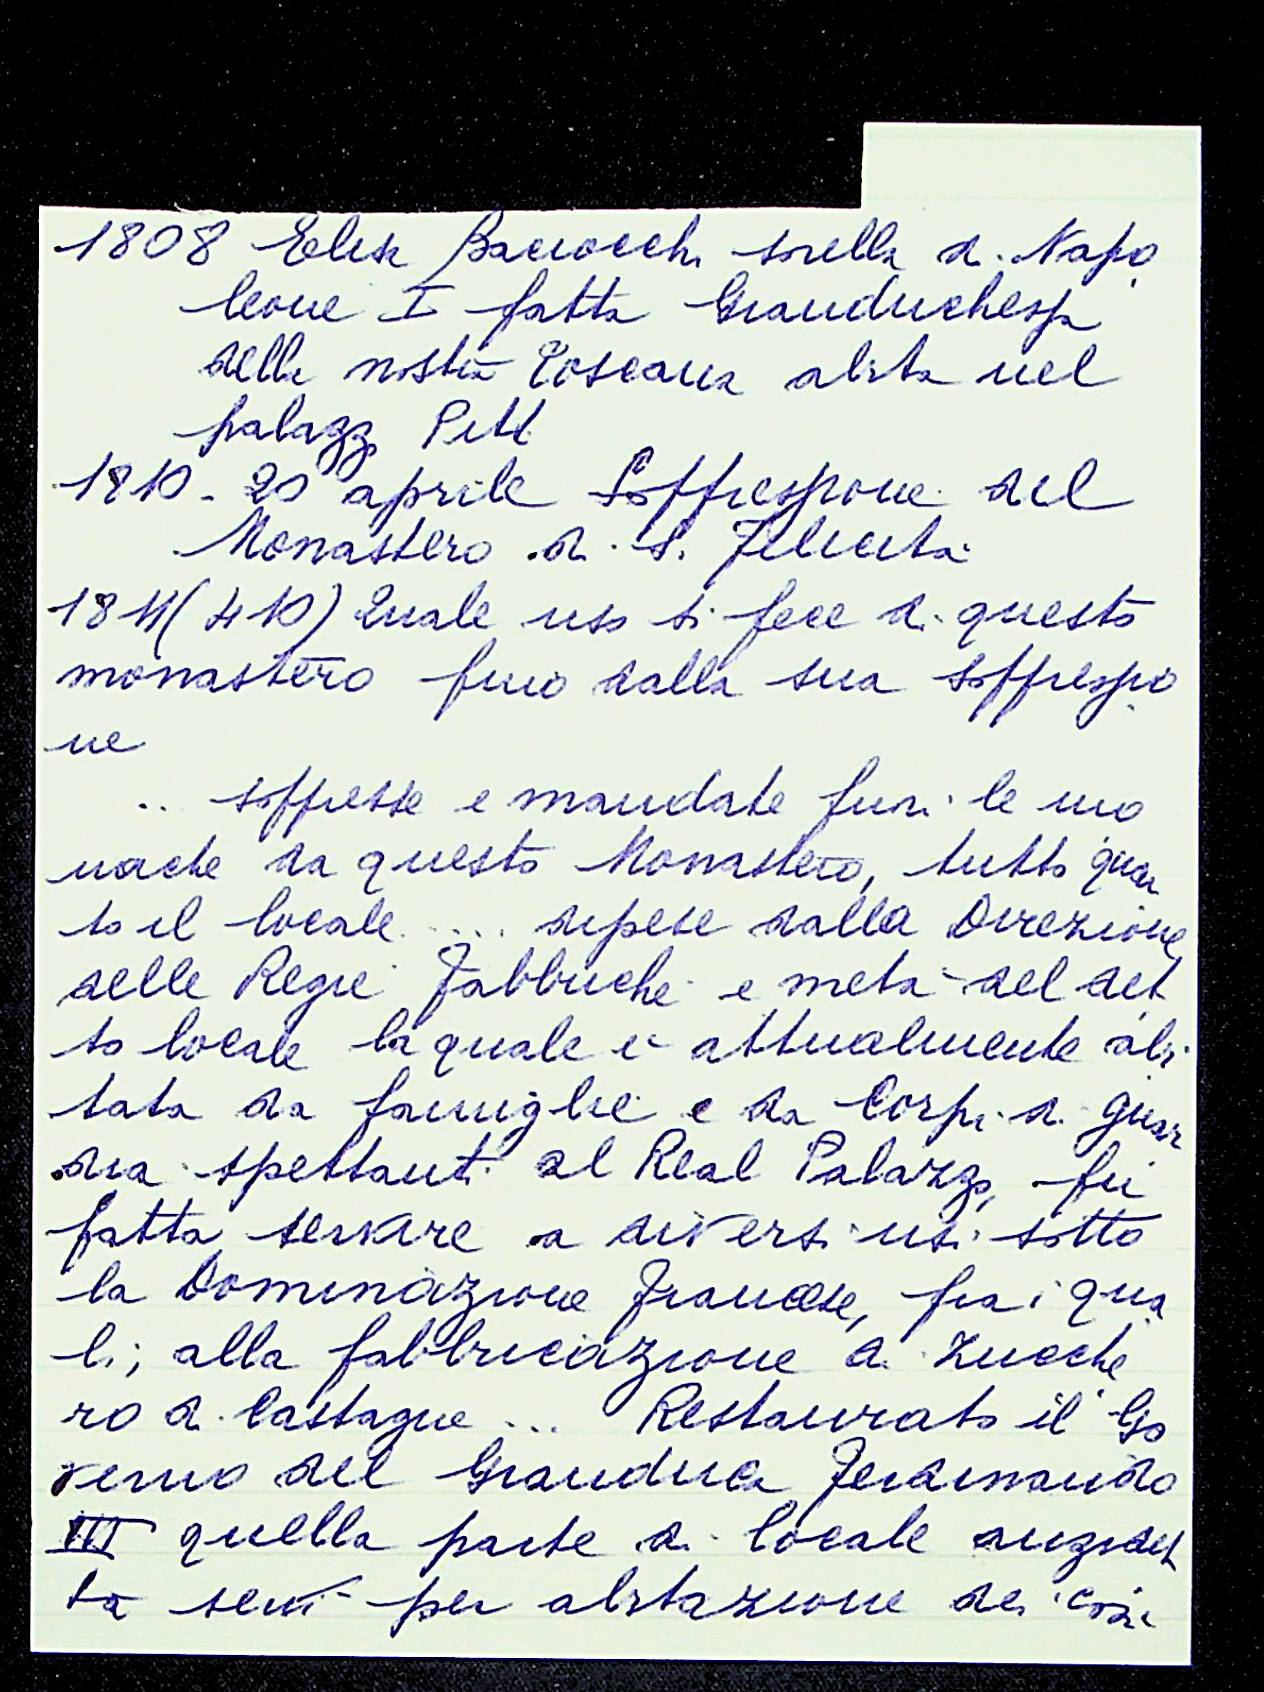 1808 Elisa Baciocchi sorella di Napo
leone I fatta Granduchessa
della nostra Toscana abita nel
palazzo Pitti
1810 - 20 aprile Soppressione del
Monastero di S. Felicita
1811 (410) Quale uso si fece di questo
monastero fino dalla sua soppressio
ne
.. soppresse e mandate fuori le mo
nache da questo Monastero, tutto quan
to il locale .... dipese dalla Direzione
delle Regie Fabbriche e metà del det
to locale la quale è attualmente abi
tata da famiglie e da Corpi di guar
dia spettanti al Real Palazzo, fu
fatta servire a diversi usi sotto
la Dominazione Francese, fra i qua
li; alla fabbricazione di zucche
ro di Castagne ... Restaurato il Go
verno del Granduca Ferdinando
III quella parte di locale anzidet
ta servì per abitazione dei così